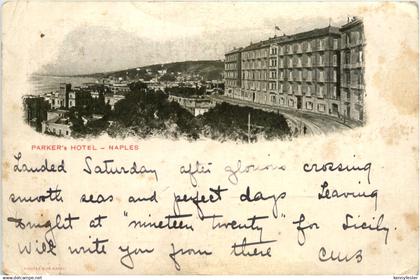 PARKER'S HOTEL – NAPLES
Landed Saturday after glorious crossing
smooth seas and perfect days Leaving
tonight at "nineteen twenty" for Sicily.
Will write you from there